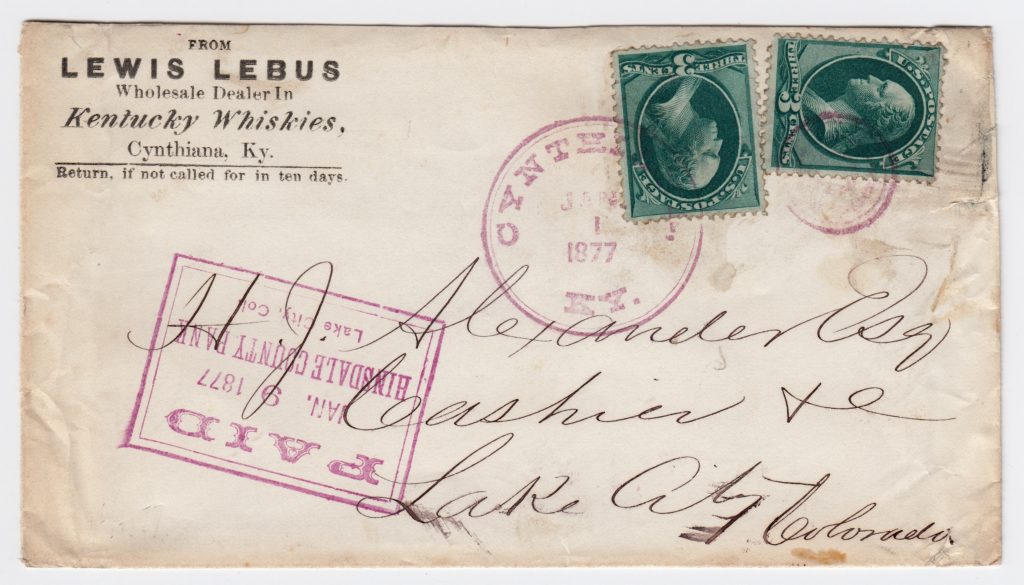 FROM
LEWIS LEBUS
Wholesale Dealer In
Kentucky Whiskies,
Cynthiana, Ky.
Return, if not called for in ten days.
U.S. POSTAGE
THREE 3 CENTS
U.S. POSTAGE
THREE 3 CENTS
CYNTH
JAN
1
1877
KY.
H. J. Alexander Esq
Cashier &c
Lake City Colorado.
PAID
JAN. 9 1877
HINSDALE COUNTY BANK
Lake City, Col